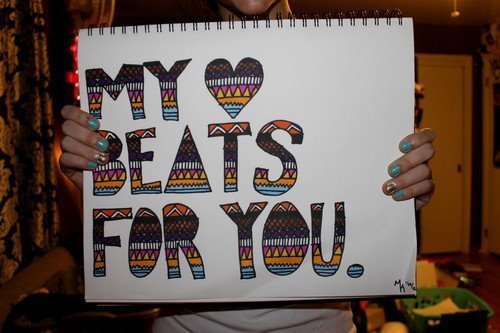 MY ♥
BEATS
FOR YOU.